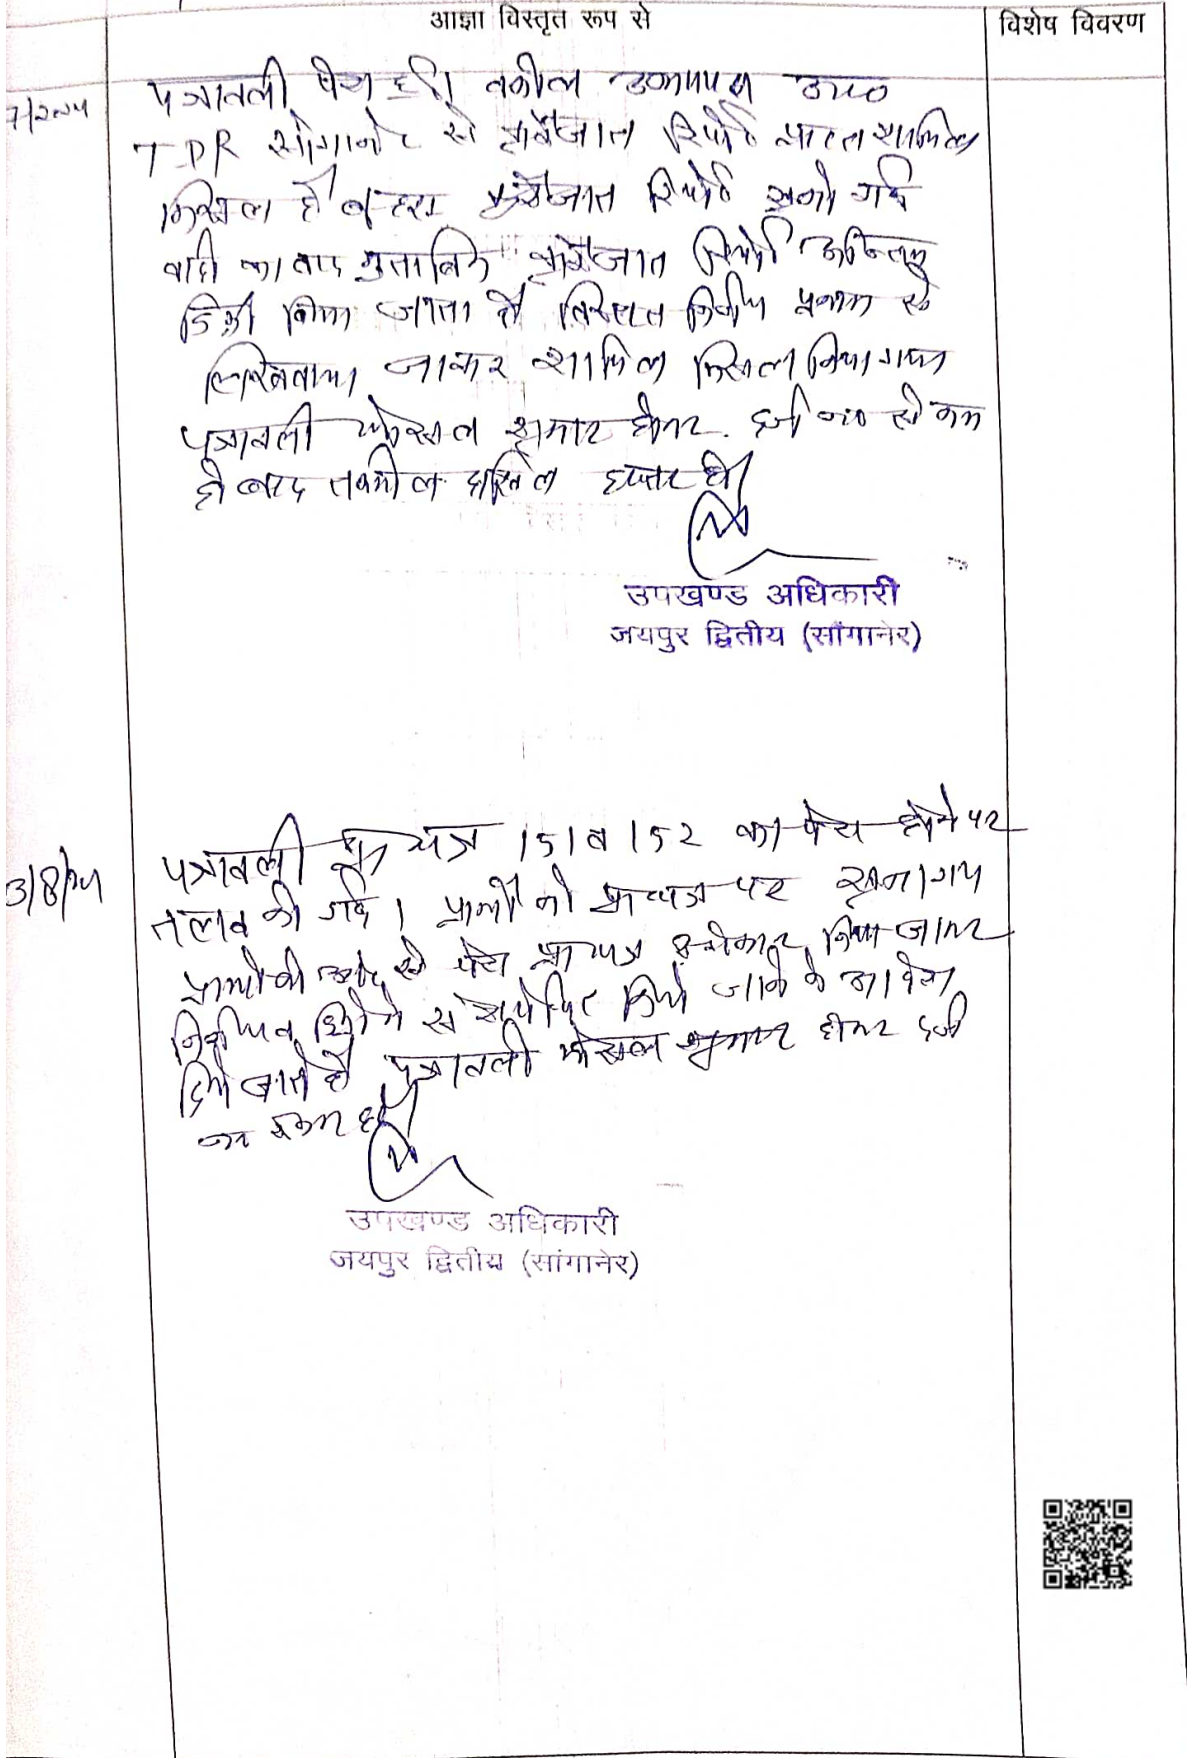 आज्ञा विस्तृत रूप से
विशेष विवरण
पत्रावली पेश हुई। वकील उभयपक्ष उप०
TDR सांगानेर से कुर्रेजात रिपोर्ट प्राप्त शामिल
मिसल है बहस कुर्रेजात रिपोर्ट सुनी गई
वादी का वाद मुताबिक कुर्रेजात रिपोर्ट अन्तिम
डिक्री किया जाता है विस्तृत निर्णय पृथक से
लिखवाया जाकर शामिल मिसल किया गया
पत्रावली फैसल शुमार होकर दर्ज न० से कम
हो बाद तकमील दाखिल दफ्तर हो।
उपखण्ड अधिकारी
जयपुर द्वितीय (सांगानेर)
पत्रावली प्रा पत्र 151 व 152 का पेश होने पर
तलब की गई। प्रार्थी को प्रा पत्र पर सुना गया
प्रार्थी की ओर से पेश प्रा पत्र स्वीकार किया जाकर
निर्णय व डिक्री में संशोधित किये जाने के आदेश
दिये जाते है पत्रावली फैसल शुमार होकर दर्ज
उपखण्ड अधिकारी
जयपुर द्वितीय (सांगानेर)